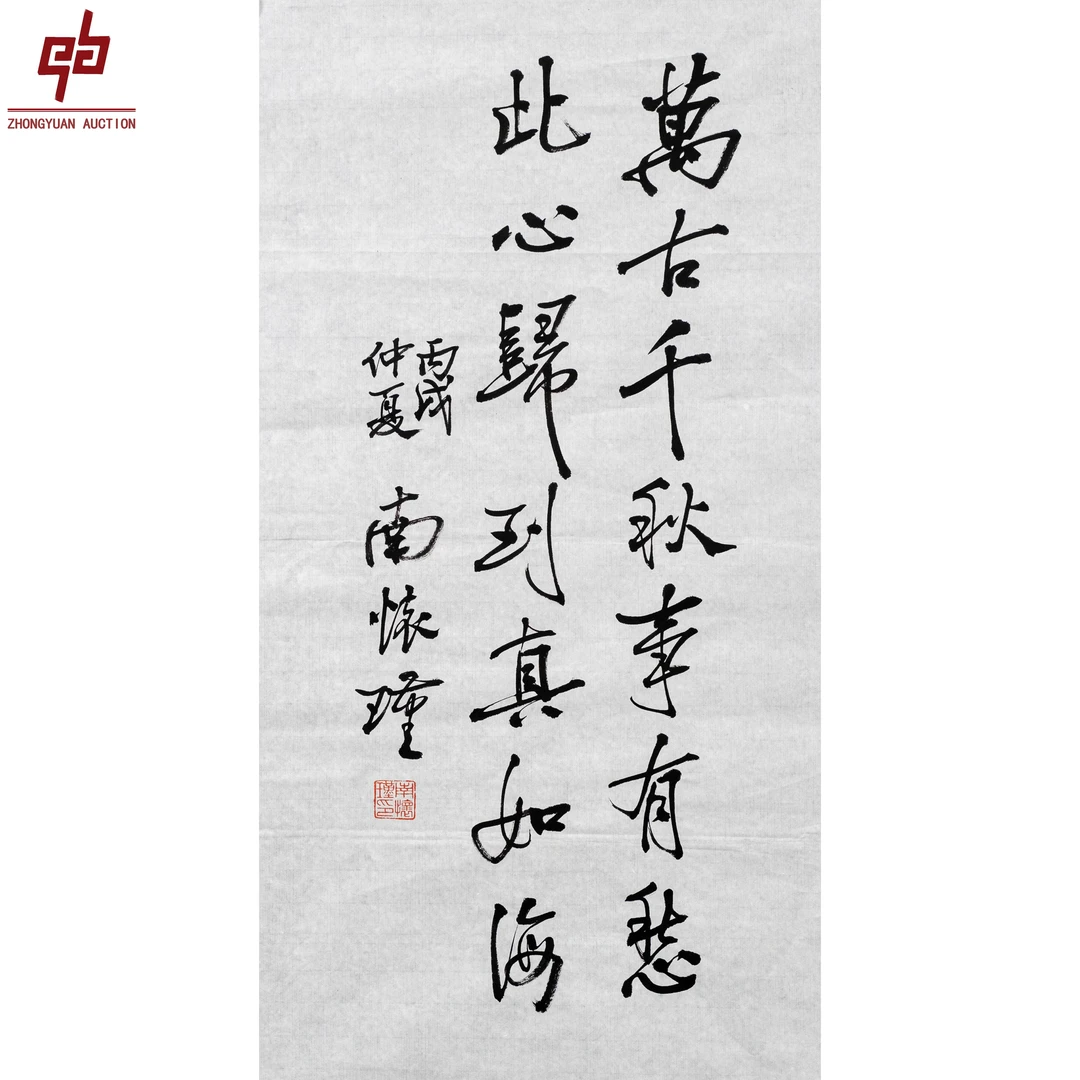 ZHONGYUAN AUCTION
萬古千秋事有愁
此心歸到真如海
丙戌
仲夏
南懷瑾
南懷
瑾印